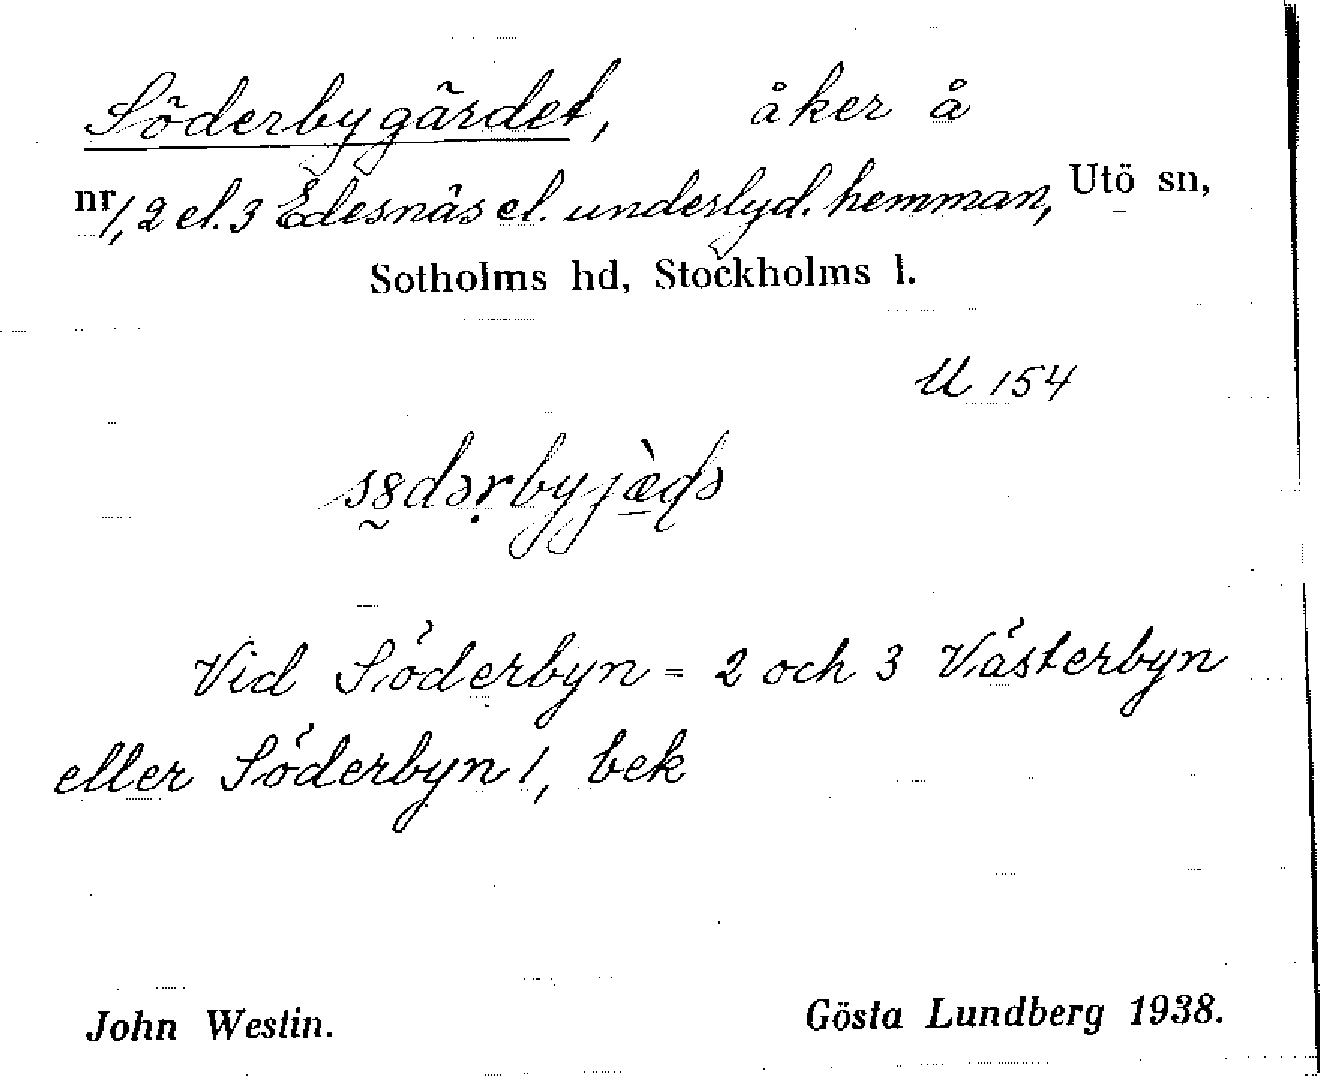 Söderbygärdet, åker å
nr 1, 2 el. 3 Edesnäs el. underlyd. hemman, Utö sn,
Sotholms hd, Stockholms l.
U 154
Vid Söderbyn = 2 och 3 Västerbyn
eller Söderbyn 1, bek
John Westin. Gösta Lundberg 1938.